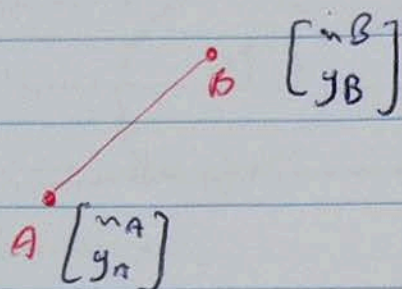 B [xB
yB]
A [xA
yA]